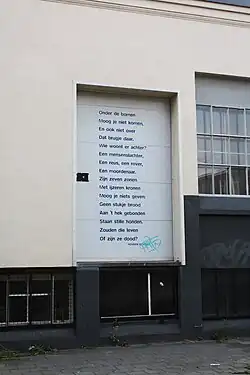 Onder de bomen
Moog je niet komen,
En ook niet over
Dat brugje daar.
Wie woont er achter?
Een mensenslachter,
Een reus, een rover,
Een moordenaar.
Zijn zeven zonen
Met ijzeren kronen
Moog je niets geven
Geen stukje brood
Aan 't hek gebonden
Staan stille honden.
Zouden die leven
Of zijn ze dood?